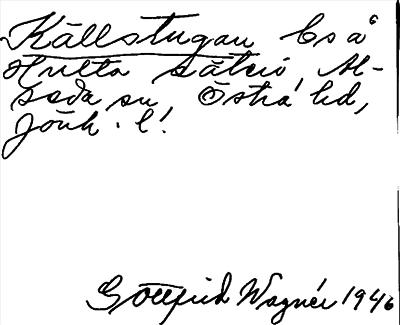 Källstugan bs å
Hulta säteri, Al-
seda sn, Östra hd,
Jönk. l.
Gottfrid Wagnér 1946